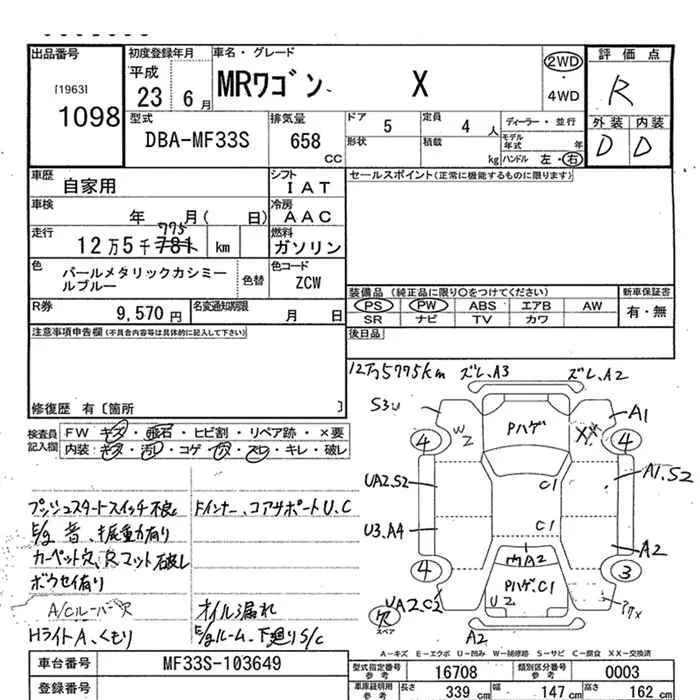 出品番号
[1963]
1098
初度登録年月
平成
23 6月
車名・グレード
MRワゴン X
2WD
・
4WD
評価点
R
外装 内装
D D
型式
DBA-MF33S
排気量
658
CC
ドア
5
形状
定員
4人
積載
kg
ディーラー・並行
モデル年式 年
ハンドル 左・右
車歴
自家用
シフト
IAT
車検
年 月( 日)
冷房
AAC
走行
775
12万5千781 km
燃料
ガソリン
色
パールメタリックカシミールブルー
色替
色コード
ZCW
R券
9,570円
名変通知期限
月 日
セールスポイント(正常に機能するものに限ります)
装備品(純正品に限り○をつけてください)
新車保証書
PS PW ABS エアB AW
SR ナビ TV カワ
有・無
後日品
注意事項申告欄(不具合内容等は具体的に記入して下さい)
修復歴 有〔箇所 〕
検査員記入欄
FW キズ・飛石・ヒビ割・リペア跡・×要
内装:キズ・汚レ・コゲ・穴・スレ・キレ・破レ
プッシュスタートスイッチ不良
E/g音、振動有り
カーペット穴、Rマット破レ
ボウセイ有り
A/Cルーバー欠
HライトA、くもり
ドインナー、コアサポートU、C
オイル漏れ
E/gルーム、下廻りS/C
12万5775km
ズレ、A3
ズレ、A2
S3U
W2
Pハゲ
XX
A1
4
4
UA2、S2
C1
A1、S2
U3、A4
C1
A2
A2
4
3
Pハゲ、C1
U2
UA2、C2
欠
スペア
A2
A-キズ E-エクボ U-凹み W-補修跡 S-サビ C-腐食 XX-交換済
車台番号
MF33S-103649
登録番号
型式指定番号
参考
16708
類別区分番号
参考
0003
車庫証明用
参考
長さ
339 cm
幅
147 cm
高さ
162 cm